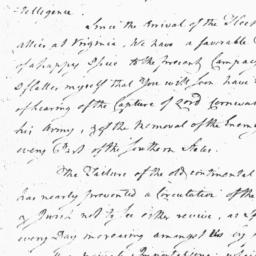 telligence.
Since the Arrival of the Fleet
allies at Virginia, We have a favorable
of a happy Issue to the present Campaig
I flatter myself that You will soon have
of hearing of the Capture of Lord Cornwa
his Army, & of the Removal of the Enem
every Part of the Southern States.
The Failure of the old Continental
has nearly prevented a Circulation of the
every Day increasing amongst Us by